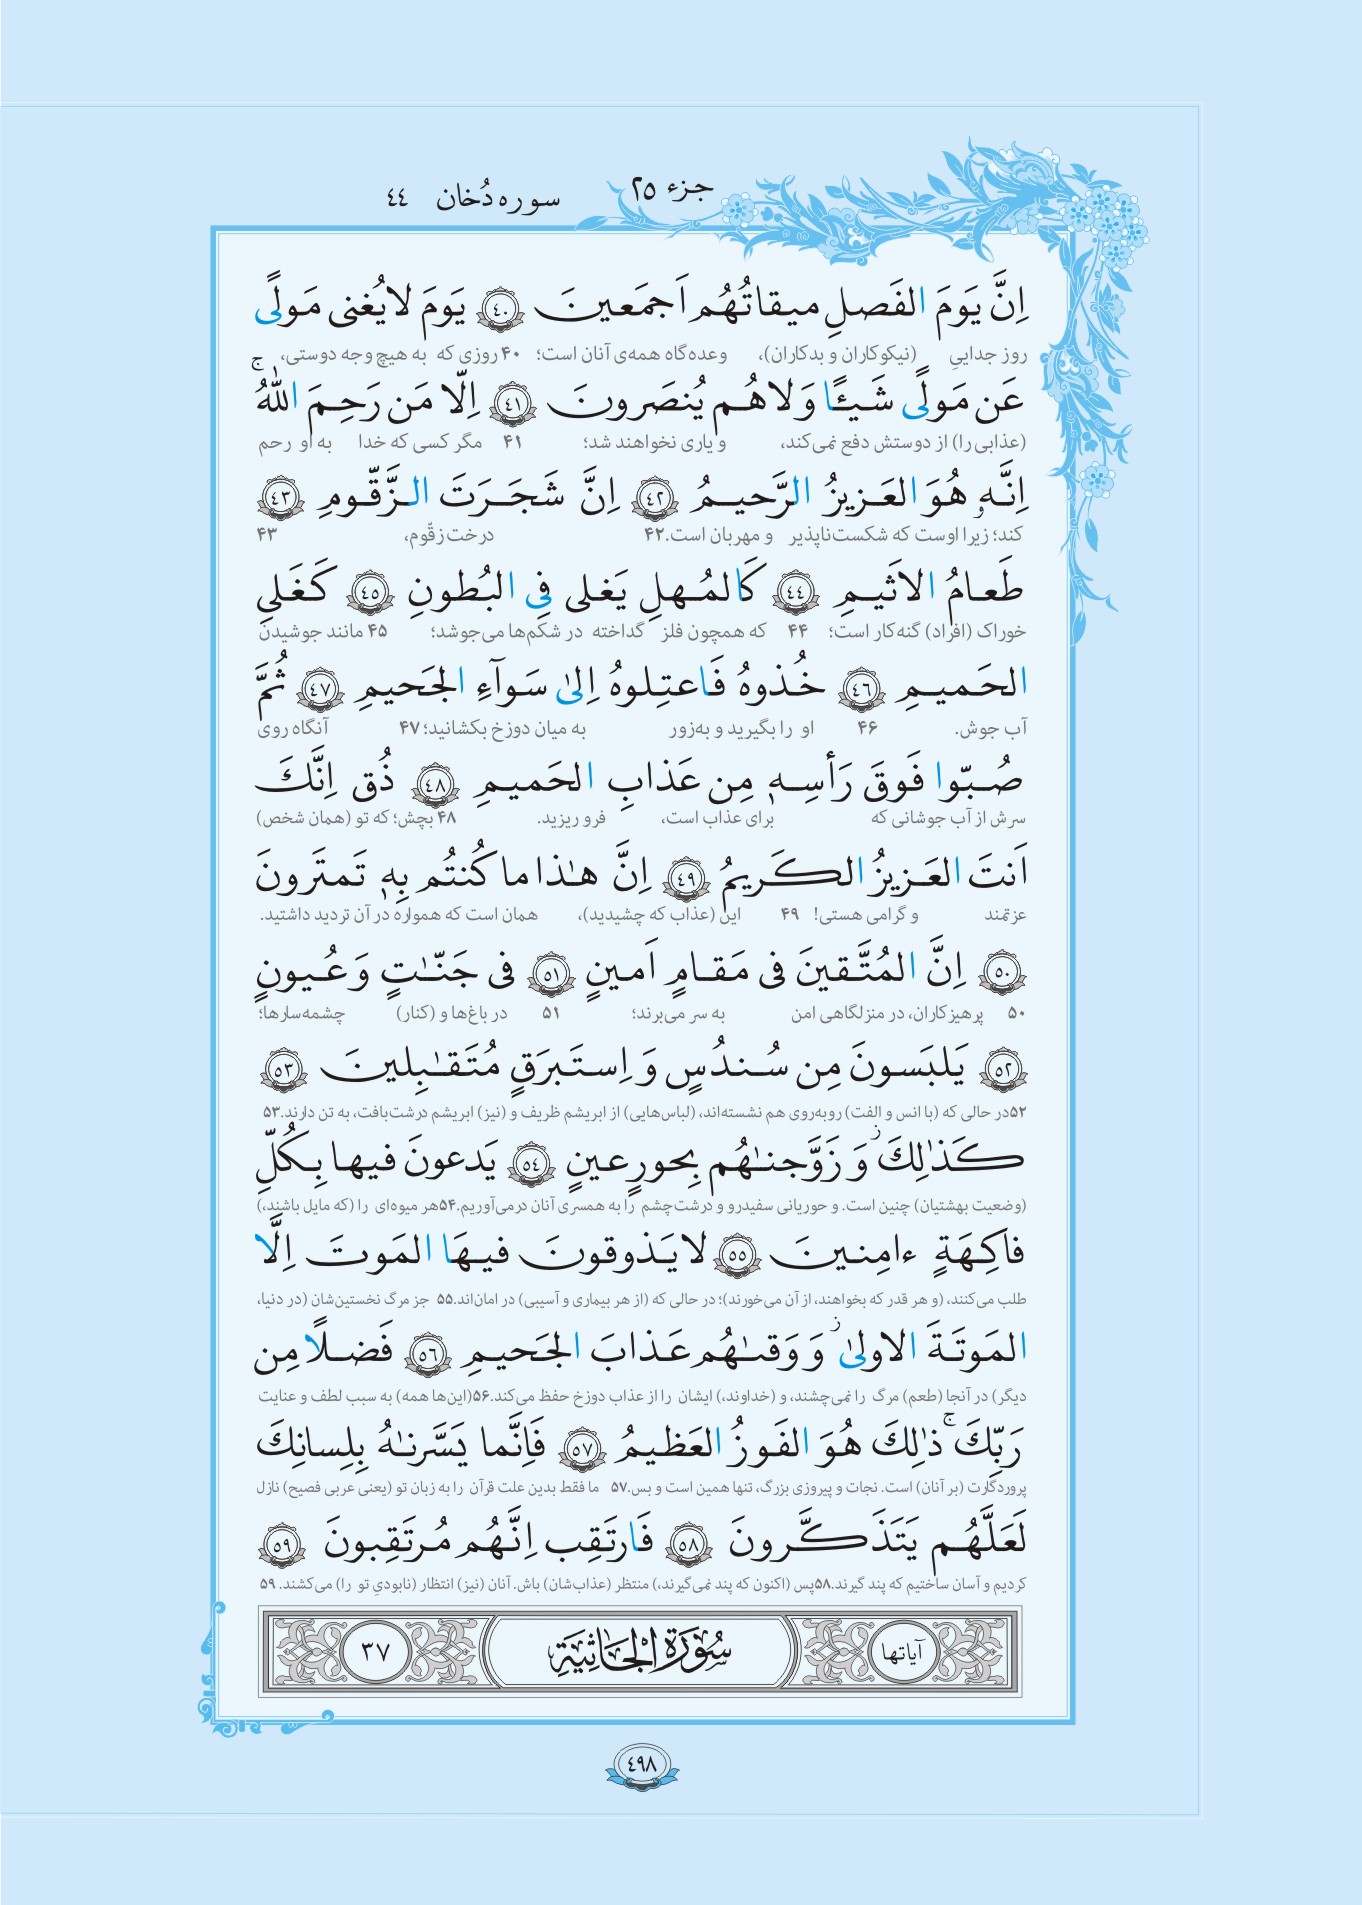 جزء ۲۵
سوره دُخان ٤٤
اِنَّ يَومَ الفَصلِ ميقاتُهُم اَجمَعينَ ﴿٤٠﴾ يَومَ لايُغنى مَولًى
روز جداییِ (نیکوکاران و بدکاران)، وعده‌گاه همه‌ی آنان است؛ ۴۰ روزی که به هیچ وجه دوستی،
عَن مَولًى شَيـًٔا وَلاهُم يُنصَرونَ ﴿٤١﴾ اِلّا مَن رَحِمَ اللّٰهُ ۚ
(عذابی را) از دوستش دفع نمی‌کند، و یاری نخواهند شد؛ ۴۱ مگر کسی که خدا به او رحم
اِنَّهۥ هُوَ العَزيزُ الرَّحيمُ ﴿٤٢﴾ اِنَّ شَجَرَتَ الزَّقّومِ ﴿٤٣﴾
کند؛ زیرا اوست که شکست‌ناپذیر و مهربان است.۴۲ درخت زقّوم، ۴۳
طَعامُ الاَثيمِ ﴿٤٤﴾ كَالمُهلِ يَغلى فِى البُطونِ ﴿٤٥﴾ كَغَلىِ
خوراک (افراد) گنه‌کار است؛ ۴۴ که همچون فلز گداخته در شکم‌ها می‌جوشد؛ ۴۵ مانند جوشیدن
الحَميمِ ﴿٤٦﴾ خُذوهُ فَاعتِلوهُ اِلىٰ سَوآءِ الجَحيمِ ﴿٤٧﴾ ثُمَّ
آب جوش. ۴۶ او را بگیرید و به‌زور به میان دوزخ بکشانید؛ ۴۷ آنگاه روی
صُبّوا فَوقَ رَأسِهٖ مِن عَذابِ الحَميمِ ﴿٤٨﴾ ذُق اِنَّكَ
سرش از آب جوشانی که برای عذاب است، فرو ریزید. ۴۸ بچش؛ که تو (همان شخص)
اَنتَ العَزيزُ الكَريمُ ﴿٤٩﴾ اِنَّ هٰذا ما كُنتُم بِهٖ تَمتَرونَ
عزتمند و گرامی هستی! ۴۹ این (عذاب که چشیدید)، همان است که همواره در آن تردید داشتید.
﴿٥٠﴾ اِنَّ المُتَّقينَ فى مَقامٍ اَمينٍ ﴿٥١﴾ فى جَنّٰتٍ وَعُيونٍ
۵۰ پرهیزکاران، در منزلگاهی امن به سر می‌برند؛ ۵۱ در باغ‌ها و (کنار) چشمه‌سارها؛
﴿٥٢﴾ يَلبَسونَ مِن سُندُسٍ وَاِستَبرَقٍ مُتَقٰبِلينَ ﴿٥٣﴾
۵۲در حالی که (با انس و الفت) روبه‌روی هم نشسته‌اند، (لباس‌هایی) از ابریشم ظریف و (نیز) ابریشم درشت‌بافت، به تن دارند.۵۳
كَذٰلِكَ ز وَزَوَّجنٰهُم بِحورٍ عينٍ ﴿٥٤﴾ يَدعونَ فيها بِكُلِّ
(وضعیت بهشتیان) چنین است. و حوریانی سفیدرو و درشت‌چشم را به همسری آنان درمی‌آوریم.۵۴هر میوه‌ای را (که مایل باشند،)
فاكِهَةٍ ءامِنينَ ﴿٥٥﴾ لا يَذوقونَ فيهَا المَوتَ اِلَّا
طلب می‌کنند، (و هر قدر که بخواهند، از آن می‌خورند)؛ در حالی که (از هر بیماری و آسیبی) در امان‌اند.۵۵ جز مرگ نخستین‌شان (در دنیا،
المَوتَةَ الاولىٰ ز وَوَقىٰهُم عَذابَ الجَحيمِ ﴿٥٦﴾ فَضلًا مِن
دیگر) در آنجا (طعم) مرگ را نمی‌چشند، و (خداوند،) ایشان را از عذاب دوزخ حفظ می‌کند.۵۶(این‌ها همه) به سبب لطف و عنایت
رَبِّكَ ۚ ذٰلِكَ هُوَ الفَوزُ العَظيمُ ﴿٥٧﴾ فَاِنَّما يَسَّرنٰهُ بِلِسانِكَ
پروردگارت (بر آنان) است. نجات و پیروزی بزرگ، تنها همین است و بس.۵۷ ما فقط بدین علت قرآن را به زبان تو (یعنی عربی فصیح) نازل
لَعَلَّهُم يَتَذَكَّرونَ ﴿٥٨﴾ فَارتَقِب اِنَّهُم مُرتَقِبونَ ﴿٥٩﴾
کردیم و آسان ساختیم که پند گیرند.۵۸پس (اکنون که پند نمی‌گیرند،) منتظر (عذاب‌شان) باش. آنان (نیز) انتظار (نابودیِ تو را) می‌کشند. ۵۹
آیاتها سُورَةُ الْجَاثِيَةِ ٣٧
٤٩٨